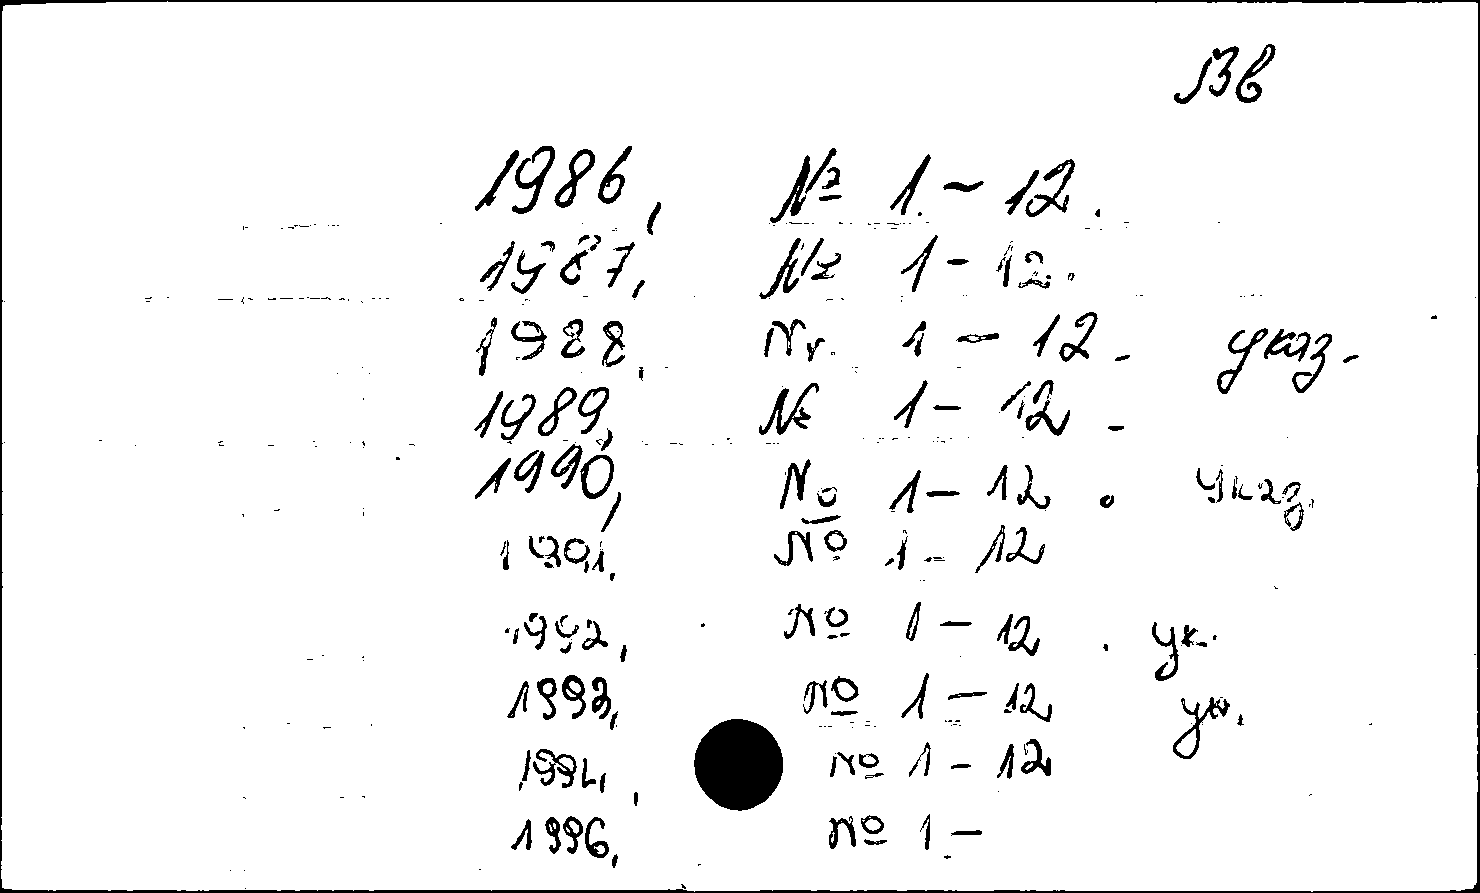 Вв
1986, № 1 - 12.
1987, № 1 - 12.
1988, Nr. 1 - 12. указ.
1989, № 1 - 12.
1990, № 1 - 12. указ.
1991, № 1 - 12
1992, № 1 - 12. ук.
1993, № 1 - 12 ук.
1994, № 1 - 12
1996, № 1 -